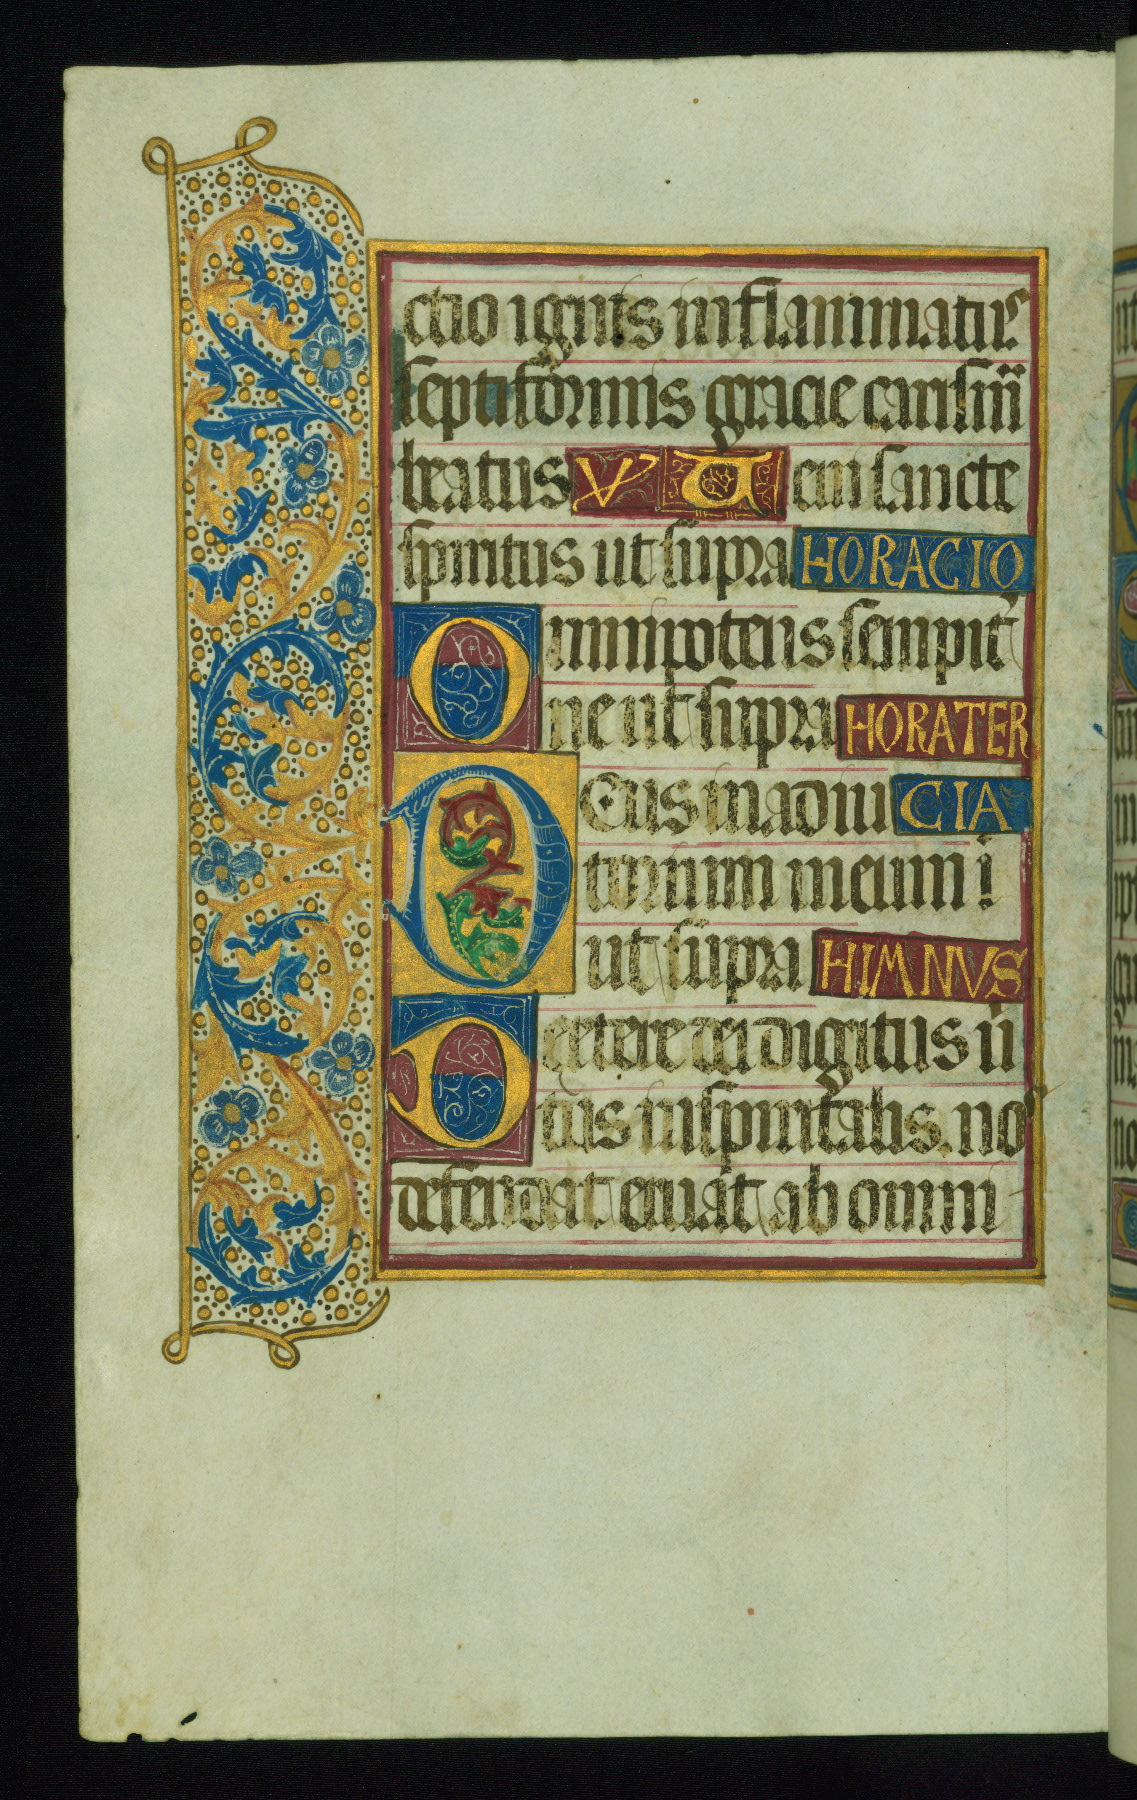 ctio ignis inflammatiꝰ
septiformis gracie carism̄
bratus V Veni sancte
spiritus ut supra HORACIO
Omnipotens sempit᷒
ne ut supra HORATER
Deus in adiu CIA
torium meum ī
ut supra HIMNVS
Dextere dei digitus ū
tus inspiritalis. nos
defendat eruat ab omni